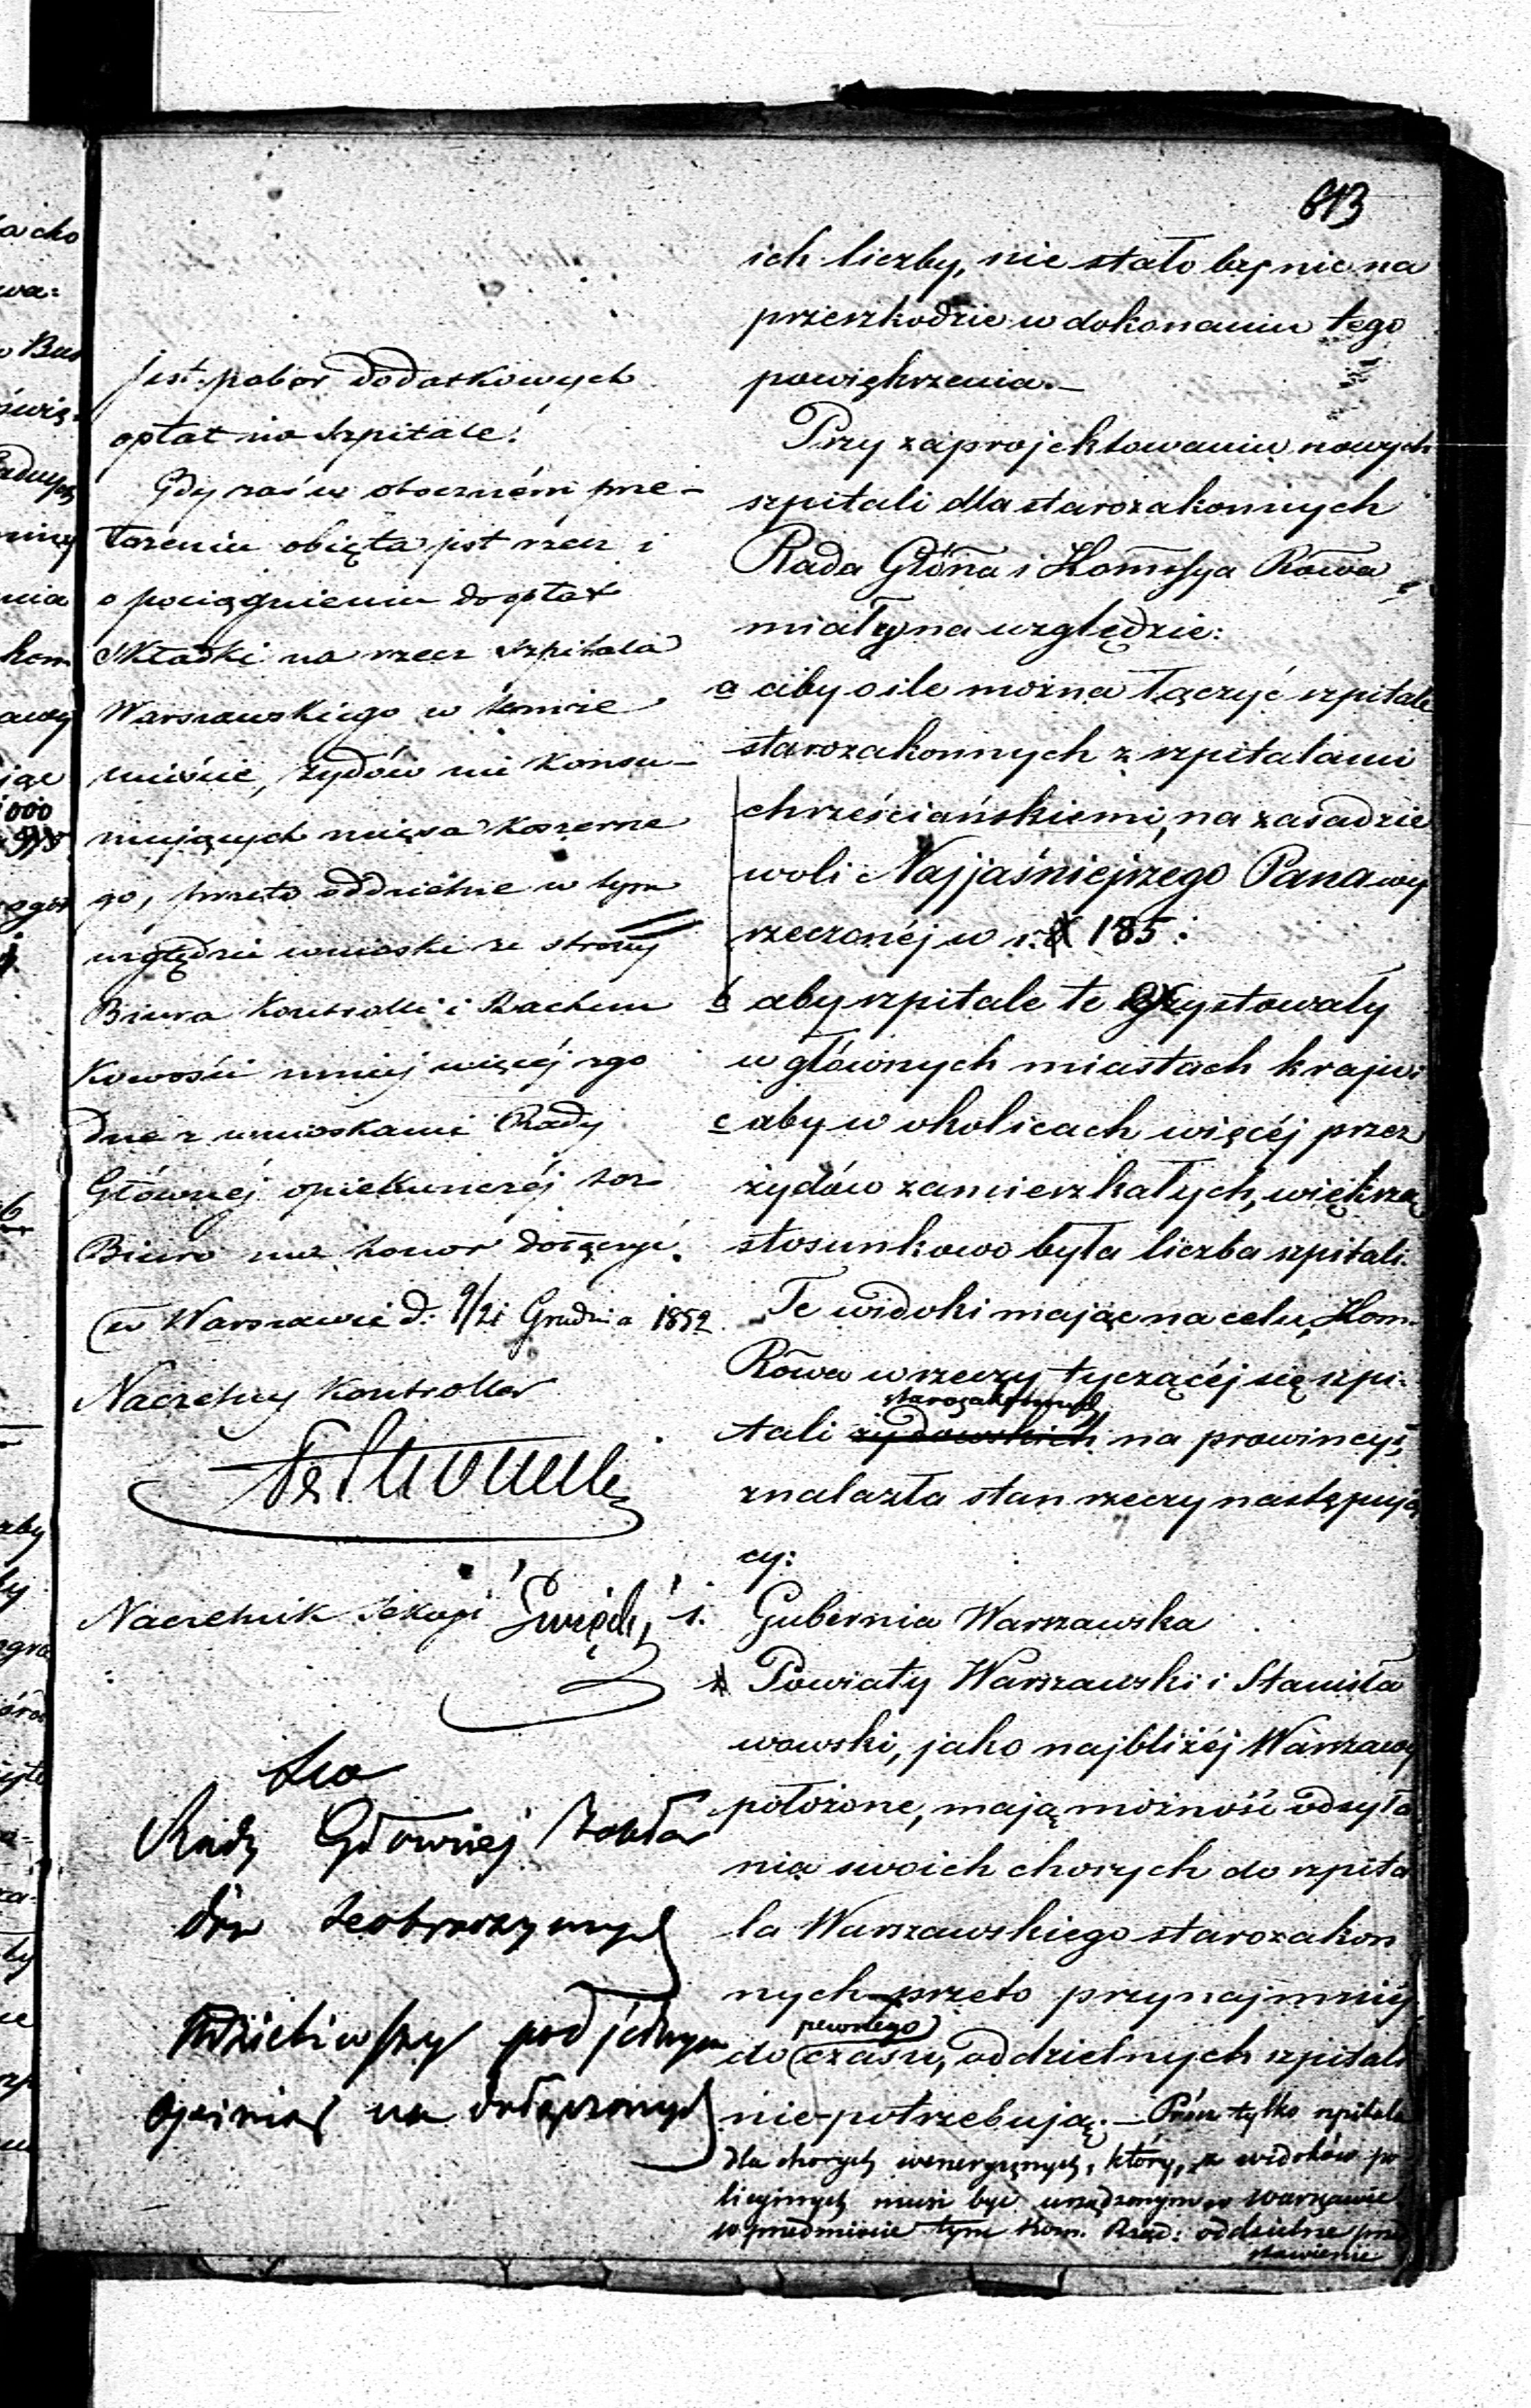 613
jest pobor dodatkowych
opłat na Szpitale.
Gdy zaś w oboczném prze-
łożeniu objęta jest rzecz i
o pociągnieniu do opłat
składki na rzecz Szpitala
Warszawskiego w temże
mieście, żydów nie konsu-
mujących mięsa koszerne
go, przeto oddzielne w tym
względzie wnioski ze strony
Biura Kontrolli i Rachun
kowości mniej więcéj zgo
dne z wnioskami Rady
Głównéj opiekunczéj
Biuro ma honor dołączyć.
w Warszawie d: 9/21 Grudnia 1852
Naczelny Kontroller
Naczelnik Sekcyi Święcki
Rady Głównej
pod jednym
na dołączonych
ich liczby, nie stało by nic na
przeszkodzie w dokonaniu tego
powiększenia.—
Przy zaprojektowaniu nowych
szpitali dla starozakonnych
Rada Główna i Kommissya Rówa
miały na względzie:
a ażby o ile można łączyć szpitale
starozakonnych z szpitalami
chrześciańskiemi, na zasadzie
woli Najjaśniejszego Pana wy
rzeczonéj w r. 185 :
b aby szpitale te exystowały
w głównych miastach kraju i
c aby w okolicach więcéj przez
żydów zamieszkałych, większą
stosunkowo była liczba szpitali.
Te widoki mając na celu, Kom.
Rówa w rzeczy tyczącéj się szpi-
starozakonnych
tali żydowskich na prowincyi,
znalazła stan rzeczy następują
cy:
1. Gubernia Warszawska
Powiaty Warszawski i Stanisła
wowski, jako najbliżéj Warszawy
położone, mają możność odsyła
nia swoich chorych do szpita
la Warszawskiego starozakon
nych przeto przynajmniéj
pewnego
do czasu, oddzielnych szpitali
nie potrzebują.— Prócz tylko szpitala
dla chorych wenerycznych, który, z widoków po
licyjnych musi być urządzonym w Warszawie
w przedmiocie tym Kom. Rząd: oddzielne przed
stawienie